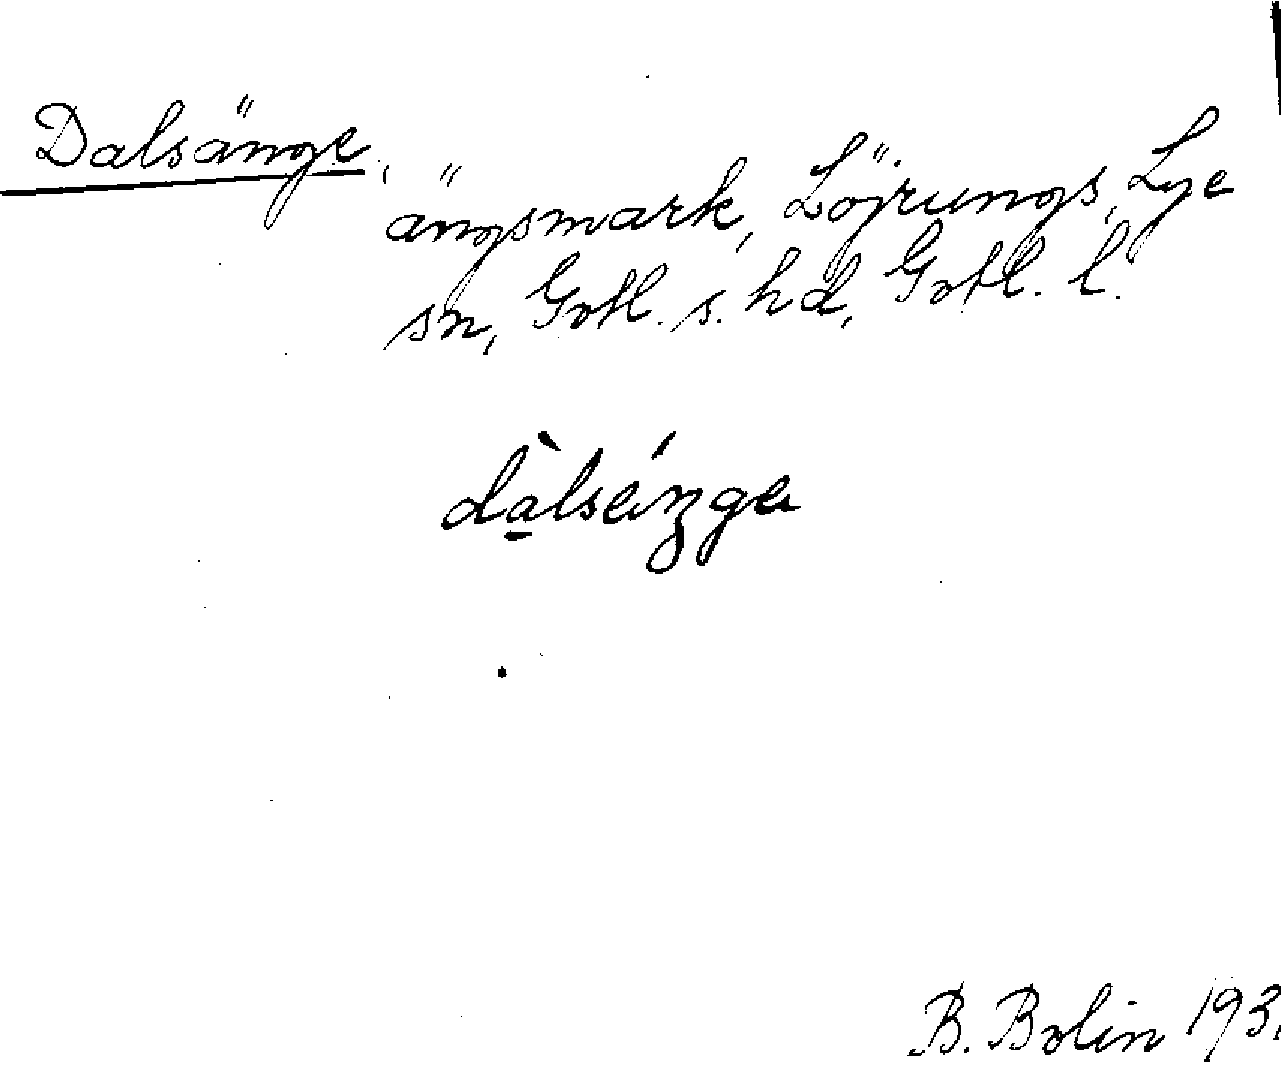 Dalsänge,
ängsmark, Löjrungs, Lye
sn, Gotl. s. hd, Gotl. l.
B. Bolin 193